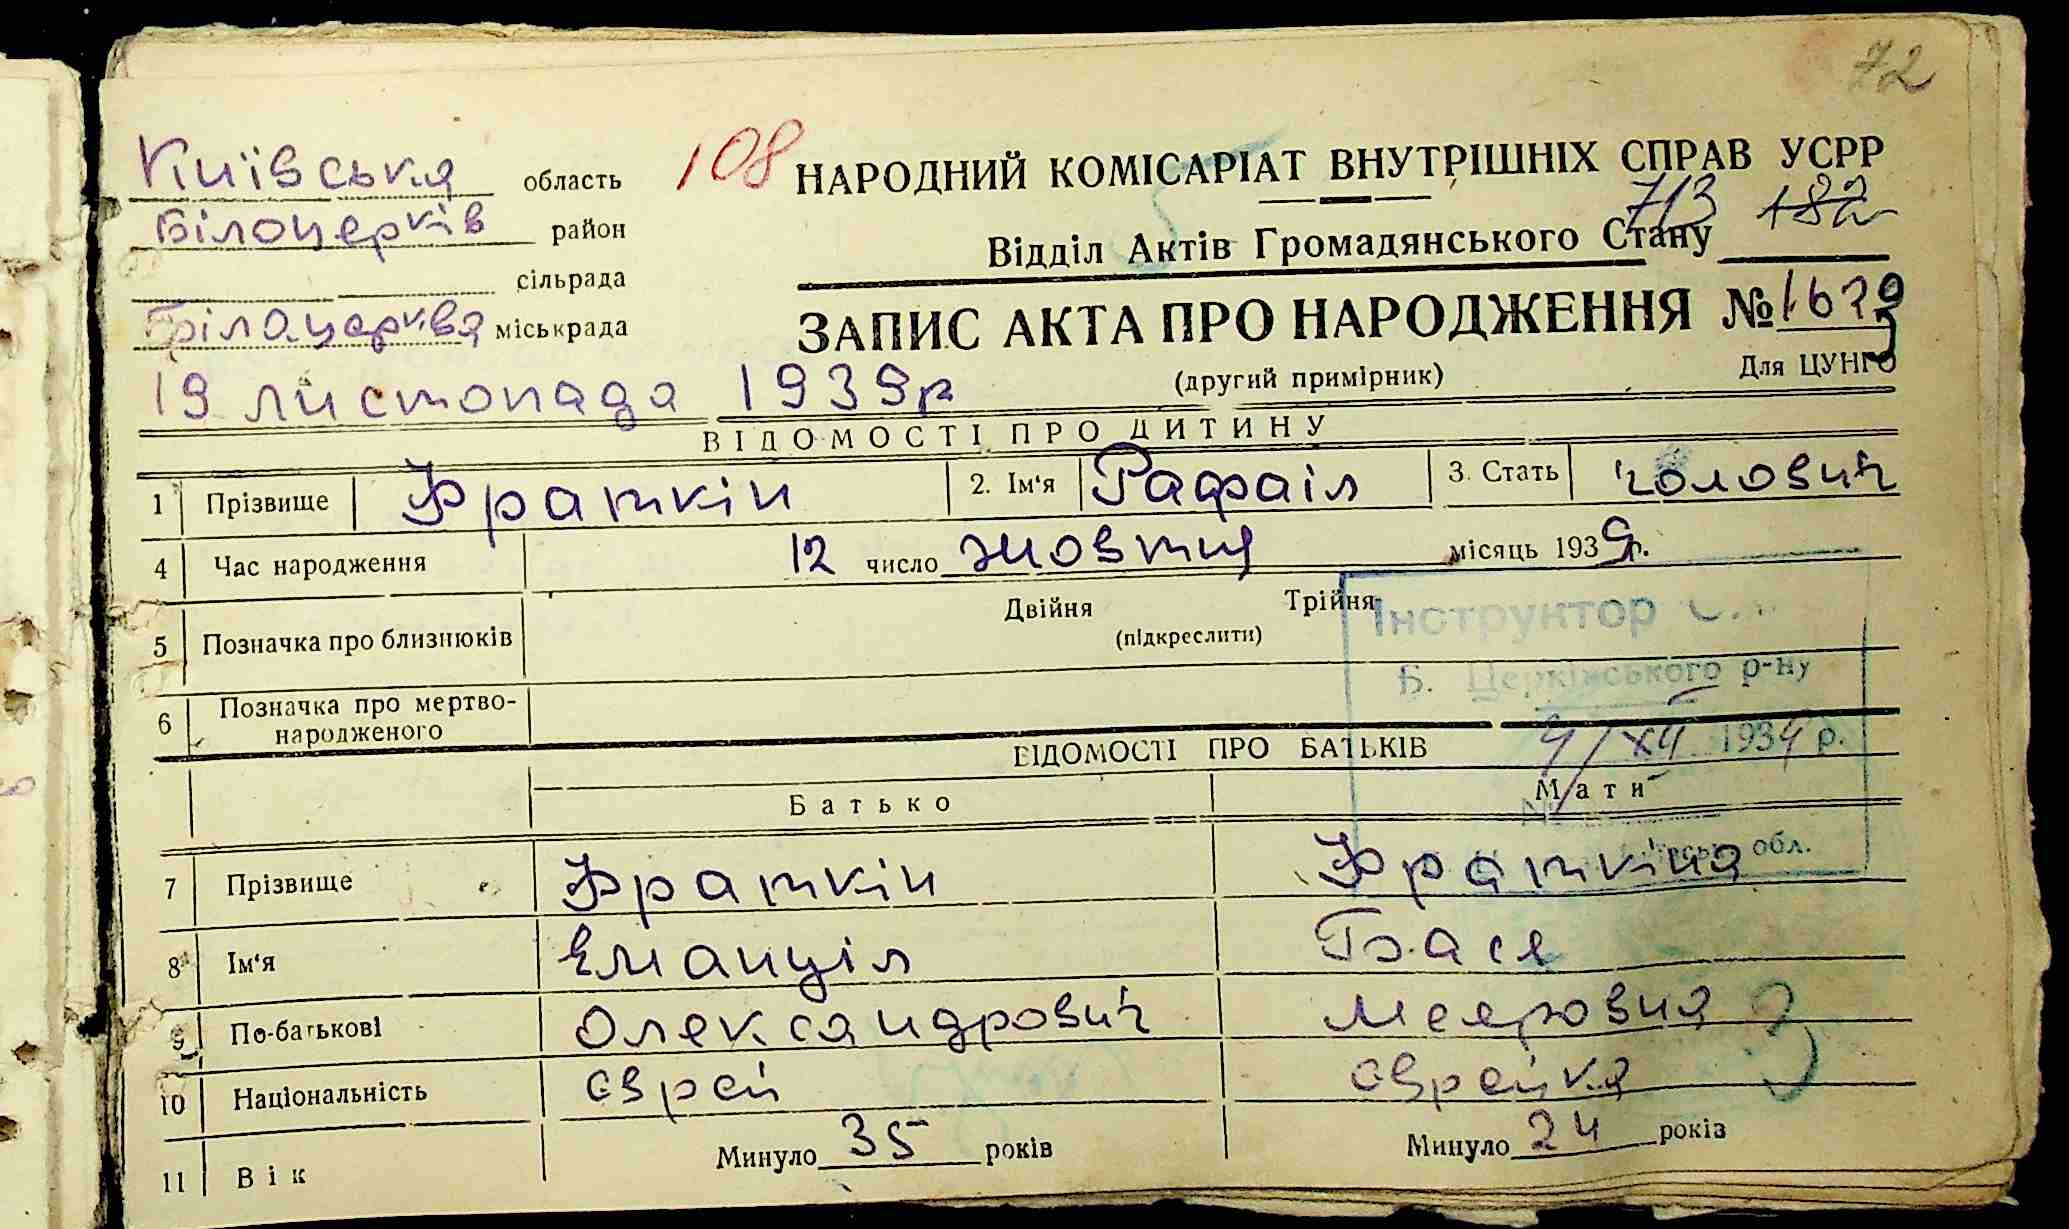 72
Київська область
108
НАРОДНИЙ КОМІСАРІАТ ВНУТРІШНІХ СПРАВ УСРР
Білоцерків район
713 182
Відділ Актів Громадянського Стану
сільрада
Білоцерква міськрада
ЗАПИС АКТА ПРО НАРОДЖЕННЯ № 1679
19 листопада 1939р
(другий примірник)
Для ЦУНГО
ВІДОМОСТІ ПРО ДИТИНУ
1 Прізвище Фраткін 2. Ім'я Рафаіл 3. Стать чолович
4 Час народження 12 число жовтня місяць 1939р.
5 Позначка про близнюків Двійня Трійня
(підкреслити)
Інструктор
Б. Церківського р-ну
6 Позначка про мертво-
народженого
ВІДОМОСТІ ПРО БАТЬКІВ
4/XII 1934 р.
Батько Мати
обл.
7 Прізвище Фраткін Фраткіна
8 Ім'я Емануіл Бася
9 По-батькові Олександрович Меяровна
10 Національність єврей єврейка
11 Вік Минуло 35 років Минуло 24 років